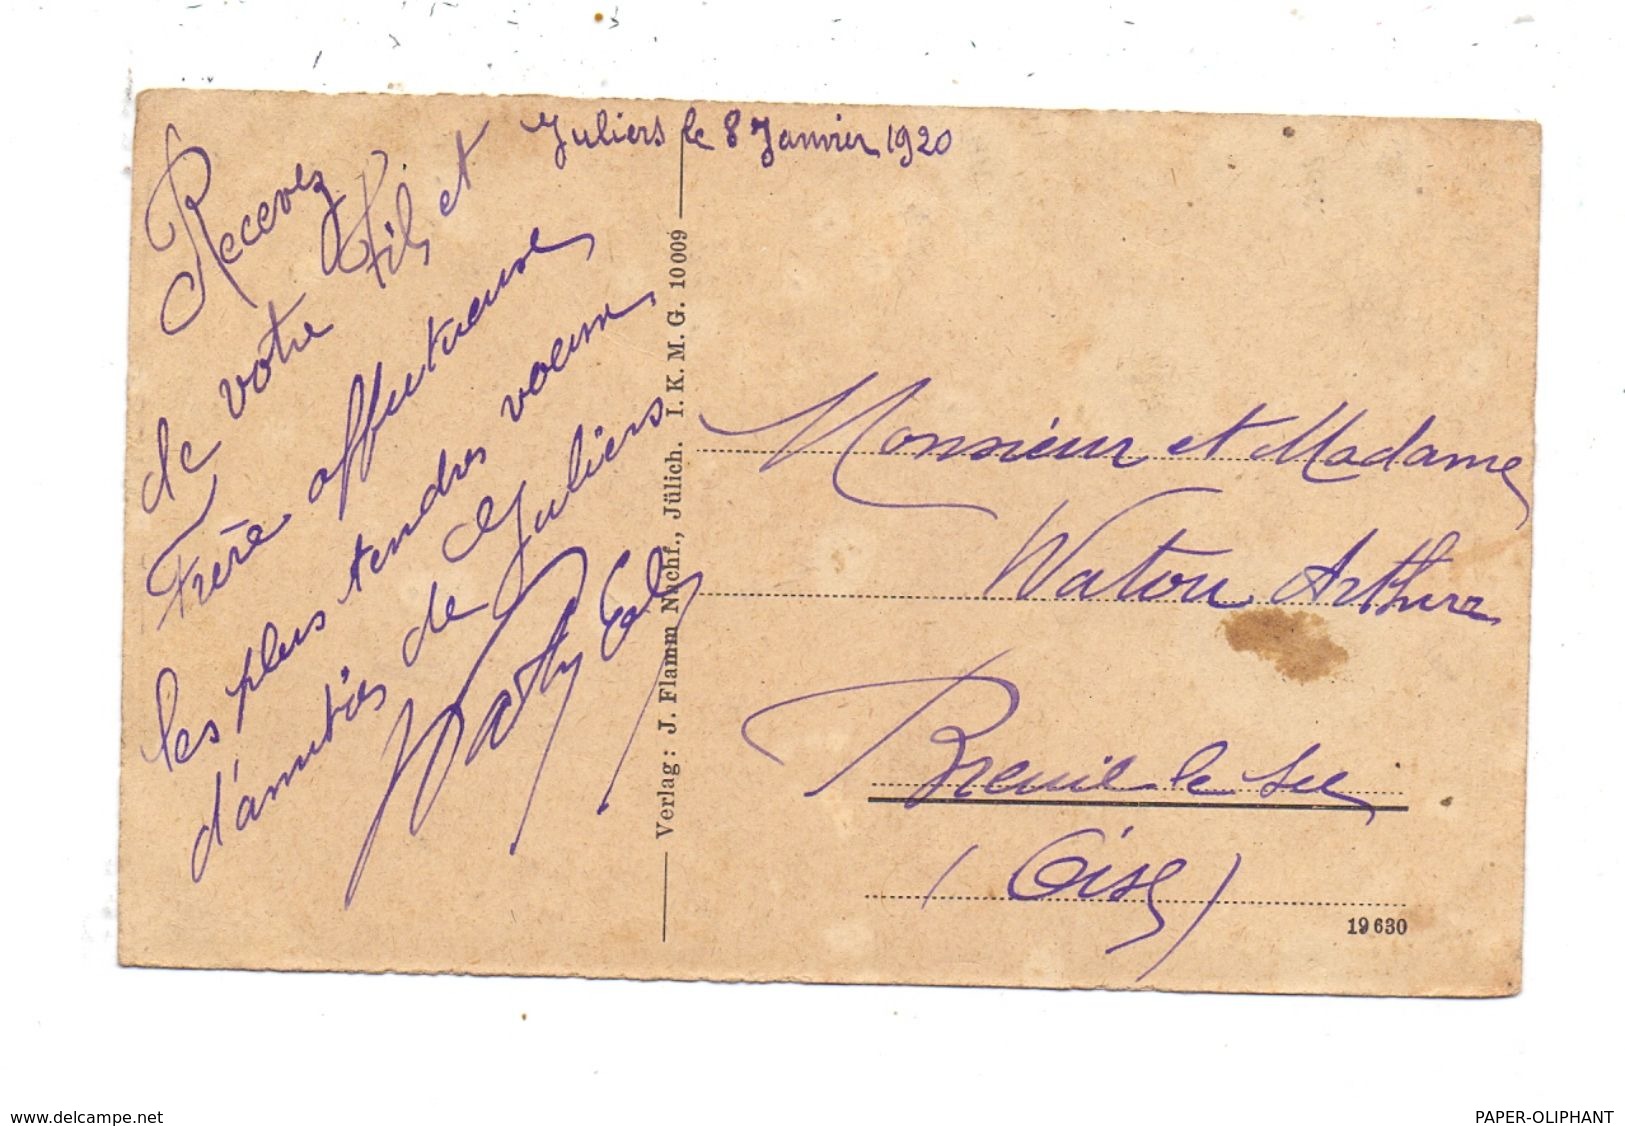 Juliers le 8 Janvier 1920
Recevez
de votre Fils et
Frère affectueuse
les plus tendres voeux
d'amitiés de
Juliers
Verlag: J. Flamm Nachf., Jülich. I. K. M. G. 10009
Monsieur et Madame
Watou Arthur
Breuil-le-Sec
(Oise)
19630
www.delcampe.net
PAPER-OLIPHANT